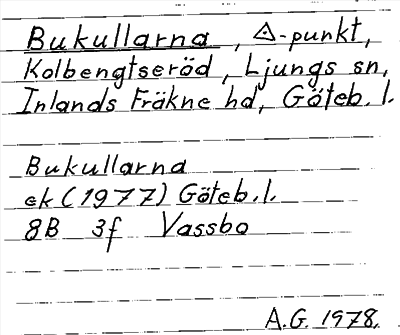 Bukullarna, ◬-punkt,
Kolbengtseröd, Ljungs sn,
Inlands Fräkne hd, Göteb. l.
Bukullarna
ek (1977) Göteb. l.
8B 3f Vassbo
A.G. 1978.